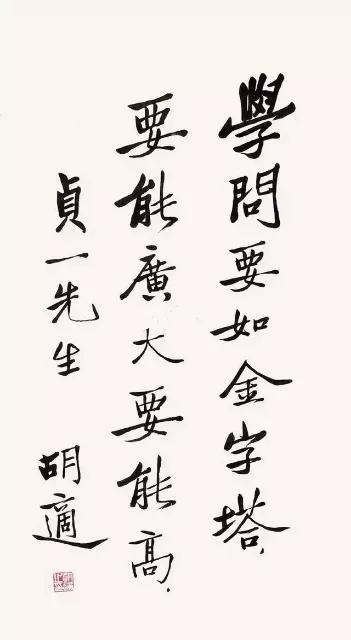 學問要如金字塔.
要能廣大要能高.
貞一先生
胡適